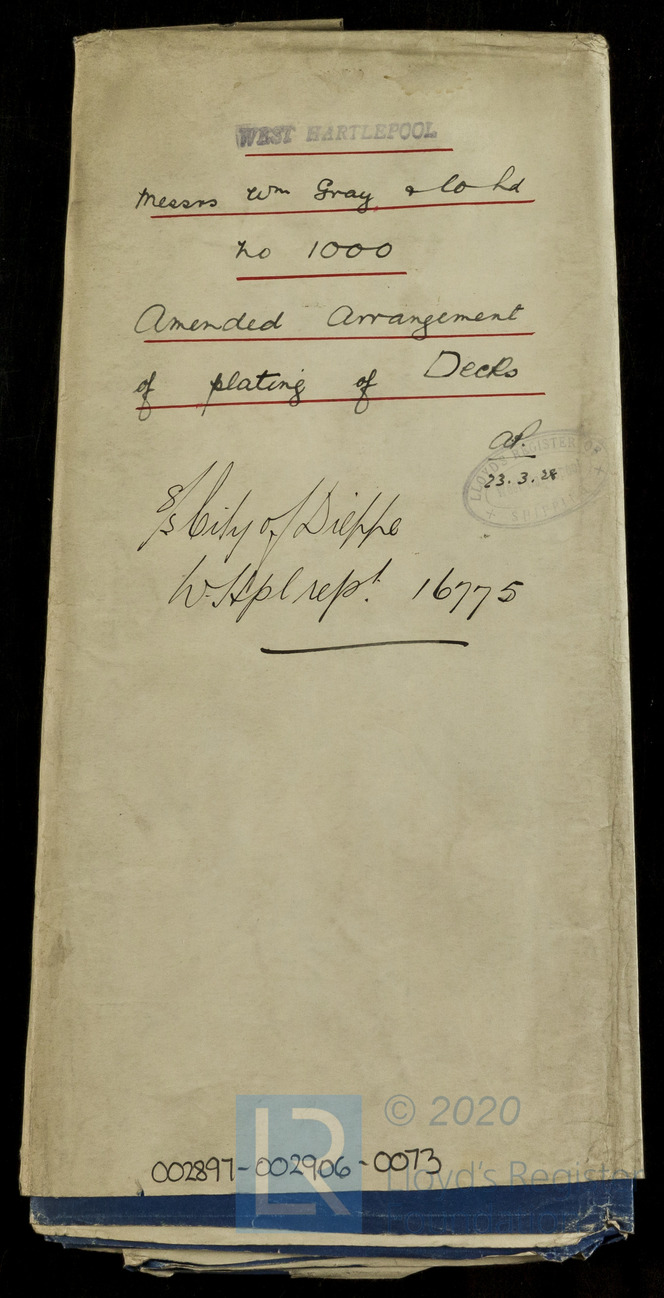 WEST HARTLEPOOL
Messrs Wm Gray & Co Ld
No 1000
Amended Arrangement
of plating of Decks
LLOYD'S REGISTER OF
23.3.28
SHIPPING
S/S City of Dieppe
W. Hpl rept. 16775
© 2020
LR
002897-002906-0073
Lloyd's Register